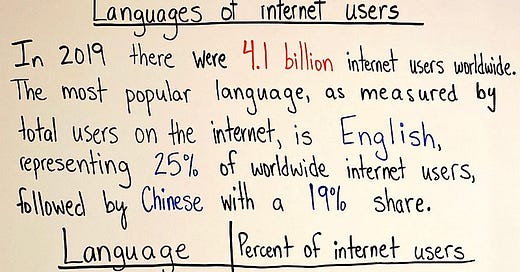 Languages of internet users
In 2019 there were 4.1 billion internet users worldwide.
The most popular language, as measured by
total users on the internet, is English,
representing 25% of worldwide internet users,
followed by Chinese with a 19% share.
Language | Percent of internet users